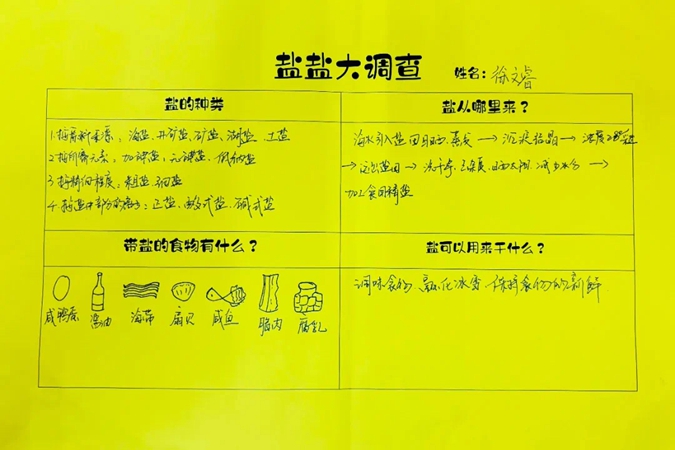 盐盐大调查
姓名：徐文睿
盐的种类
1.按原料来源：海盐、井矿盐、矿盐、湖盐、土盐
2.按所需元素：加碘盐、无碘盐、低钠盐
3.按精细程度：粗盐、细盐
4.按盐中部分的离子：正盐、酸式盐、碱式盐
盐从哪里来？
海水引入盐田日晒、蒸发→沉淀结晶→
→运出盐田→洗干净、去杂质、减少水分→
加工食用精盐
带盐的食物有什么？
咸鸭蛋 酱油 海带 扇贝 咸鱼 腊肉 腐乳
盐可以用来干什么？
调味食物、融化冰雪 保持食物的新鲜